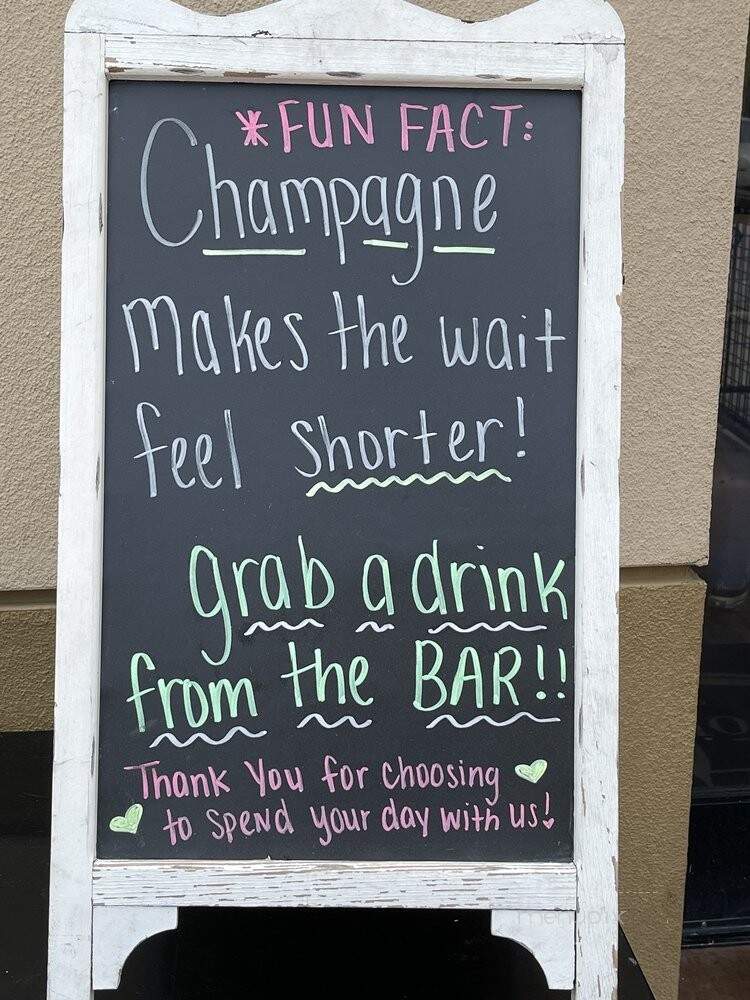 *FUN FACT:
Champagne
makes the wait
feel shorter!
grab a drink
from the BAR!!
Thank You for choosing
to spend your day with us!